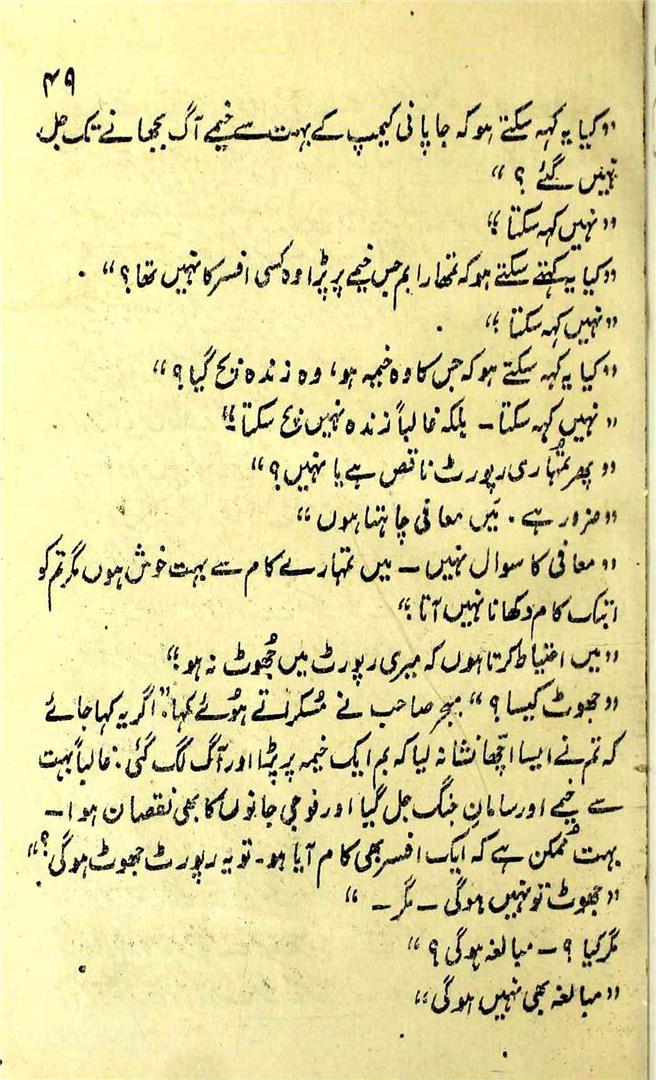 ۴۹
"کیا یہ کہہ سکتے ہو کہ جاپانی کیمپ کے بہت سے خیمے آگ بجھانے تک جل
نہیں گئے ؟"
"نہیں کہہ سکتا"
"کیا یہ کہتے سکتے ہو کہ تمھارا بم جس خیمے پر پڑا وہ کسی افسر کا نہیں تھا؟"
"نہیں کہہ سکتا"
"کیا یہ کہہ سکتے ہو کہ جس کا وہ خیمہ ہو، وہ زندہ بچ گیا؟"
"نہیں کہہ سکتا۔ بلکہ غالباً زندہ نہیں بچ سکتا۔"
"پھر تمُہاری رپورٹ ناقص ہے یا نہیں؟"
"ضرور ہے۔ مَیں معافی چاہتا ہوں"
"معافی کا سوال نہیں۔ میں تمہارے کام سے بہت خوش ہوں مگر تم کو
ابتک کام دکھانا نہیں آتا۔"
"میں احتیاط کرتا ہوں کہ میری رپورٹ میں جُھوٹ نہ ہو۔"
"جھوٹ کیسا؟" میجر صاحب نے مُسکراتے ہوُئے کہا: "اگر یہ کہا جائے
کہ تم نے ایسا اچّھا نشانہ لیا کہ بم ایک خیمہ پر پڑا اور آگ لگ گئی: غالباً بہت
سے خیمے اور سامانِ جنگ جل گیا اور فوجی جانوں کا بھی نقصان ہوا۔
بہت مُمکن ہے کہ ایک افسر بھی کام آیا ہو۔ تو یہ رپورٹ جھوٹ ہوگی؟"
"جھوٹ تو نہیں ہوگی۔ مگر۔"
مگر کیا؟۔ مبالغہ ہوگی؟"
"مبالغہ بھی نہیں ہوگی"